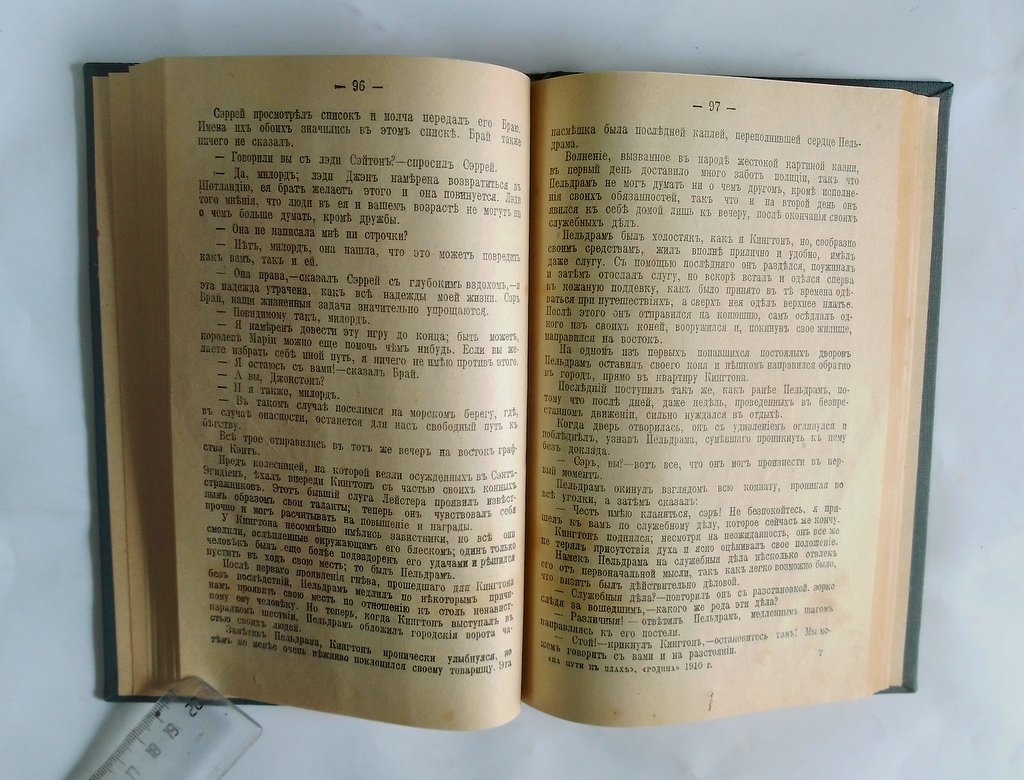 — 96 —
Сэррей просмотрѣлъ списокъ и молча передалъ его Браю.
Имена ихъ обоихъ значились въ этомъ спискѣ. Брай также
ничего не сказалъ.
— Говорили вы съ лэди Сэйтонъ?—спросилъ Сэррей.
— Да, милордъ; лэди Джэнъ намѣрена возвратиться въ
Шотландію, ея братъ желаетъ этого и она повинуется. Лэди
того мнѣнія, что люди въ ея и вашемъ возрастѣ не могутъ ни
о чемъ больше думать, кромѣ дружбы.
— Она не написала мнѣ ни строчки?
— Нѣтъ, милордъ, она нашла, что это можетъ повредить
какъ вамъ, такъ и ей.
— Она права,—сказалъ Сэррей съ глубокимъ вздохомъ,—и
эта надежда утрачена, какъ всѣ надежды моей жизни. Сэръ
Брай, наши жизненныя задачи значительно упрощаются.
— Повидимому такъ, милордъ.
— Я намѣренъ довести эту игру до конца; быть можетъ,
королевѣ Маріи можно еще помочь чѣмъ нибудь. Если вы же-
лаете избрать себѣ иной путь, я ничего не имѣю противъ этого.
— Я остаюсь съ вами!—сказалъ Брай.
— А вы, Джонстонъ?
— И я также, милордъ.
— Въ такомъ случаѣ поселимся на морскомъ берегу, гдѣ,
въ случаѣ опасности, останется для насъ свободный путь къ
бѣгству.
Всѣ трое отправились въ тотъ же вечеръ на востокъ граф-
ства Кэнтъ.
Предъ колесницей, на которой везли осужденныхъ въ Сэнтъ-
Эгидіенъ, ѣхалъ впереди Кингтонъ съ частью своихъ конныхъ
стражниковъ. Этотъ бывшій слуга Лейстера проявилъ извѣст-
нымъ образомъ свои таланты; теперь онъ чувствовалъ себя
прочно и могъ расчитывать на повышеніе и награды.
У Кингтона несомнѣнно имѣлись завистники, но всѣ они
смолкли, ослѣпленные окружающимъ его блескомъ; одинъ только
человѣкъ былъ еще болѣе подзадоренъ его удачами и рѣшился
пустить въ ходъ свою месть; то былъ Пельдрамъ.
Послѣ перваго проявленія гнѣва, прошедшаго для Кингтона
безъ послѣдствій, Пельдрамъ медлилъ по нѣкоторымъ причи-
намъ проявить свою месть по отношенію къ столь ненавист-
ному ему человѣку. Но теперь, когда Кингтонъ выступалъ въ
парадномъ шествіи, Пельдрамъ обложилъ городскія ворота ча-
стью своихъ людей.
Замѣтивъ Пельдрама, Кингтонъ иронически улыбнулся, но
тѣмъ не менѣе очень вѣжливо поклонился своему товарищу. Эта
— 97 —
насмѣшка была послѣдней каплей, переполнившей сердце Пель-
драма.
Волненіе, вызванное въ народѣ жестокой картиной казни,
въ первый день доставило много заботъ полиціи, такъ что
Пельдрамъ не могъ думать ни о чемъ другомъ, кромѣ исполне-
нія своихъ обязанностей, такъ что и на второй день онъ
явился къ себѣ домой лишь къ вечеру, послѣ окончанія своихъ
служебныхъ дѣлъ.
Пельдрамъ былъ холостякъ, какъ и Кингтонъ, но, сообразно
своимъ средствамъ, жилъ вполнѣ прилично и удобно, имѣлъ
даже слугу. Съ помощью послѣдняго онъ раздѣлся, поужиналъ
и затѣмъ отослалъ слугу, но вскорѣ всталъ и одѣлся сперва
въ кожаную поддевку, какъ было принято въ тѣ времена одѣ-
ваться при путешествіяхъ, а сверхъ нея одѣлъ верхнее платье.
Послѣ этого онъ отправился на конюшню, самъ осѣдлалъ од-
ного изъ своихъ коней, вооружился и, покинувъ свое жилище,
направился на востокъ.
На одномъ изъ первыхъ попавшихся постоялыхъ дворовъ
Пельдрамъ оставилъ своего коня и пѣшкомъ направился обратно
въ городъ, прямо въ квартиру Кингтона.
Послѣдній поступилъ такъ же, какъ ранѣе Пельдрамъ, по-
тому что послѣ дней, даже недѣль, проведенныхъ въ безпре-
станномъ движеніи, сильно нуждался въ отдыхѣ.
Когда дверь отворилась, онъ съ удивленіемъ оглянулся и
поблѣднѣлъ, узнавъ Пельдрама, сумѣвшаго проникнуть къ нему
безъ доклада.
— Сэръ, вы?—вотъ все, что онъ могъ произнести въ пер-
вый моментъ.
Пельдрамъ окинулъ взглядомъ всю комнату, проникая во
всѣ уголки, а затѣмъ сказалъ:
— Честь имѣю кланяться, сэръ! Не безпокойтесь, я при-
шелъ къ вамъ по служебному дѣлу, которое сейчасъ же кончу.
Кингтонъ поднялся; несмотря на неожиданность, онъ все же
не терялъ присутствія духа и ясно оцѣнивалъ свое положеніе.
Намекъ Пельдрама на служебныя дѣла нѣсколько отвлекъ
его отъ первоначальной мысли, такъ какъ легко возможно было,
что визитъ былъ дѣйствительно дѣловой.
— Служебныя дѣла?—повторилъ онъ съ разстановкой, зорко
слѣдя за вошедшимъ,—какого же рода эти дѣла?
— Различныя! — отвѣтилъ Пельдрамъ, медленнымъ шагомъ
направляясь къ его постели.
— Стой!—крикнулъ Кингтонъ,—остановитесь тамъ! Мы мо-
жемъ говорить съ вами и на разстояніи.
«НА ПУТИ КЪ ПЛАХѢ». «РОДИНА» 1910 г. 7
22
19
18
17